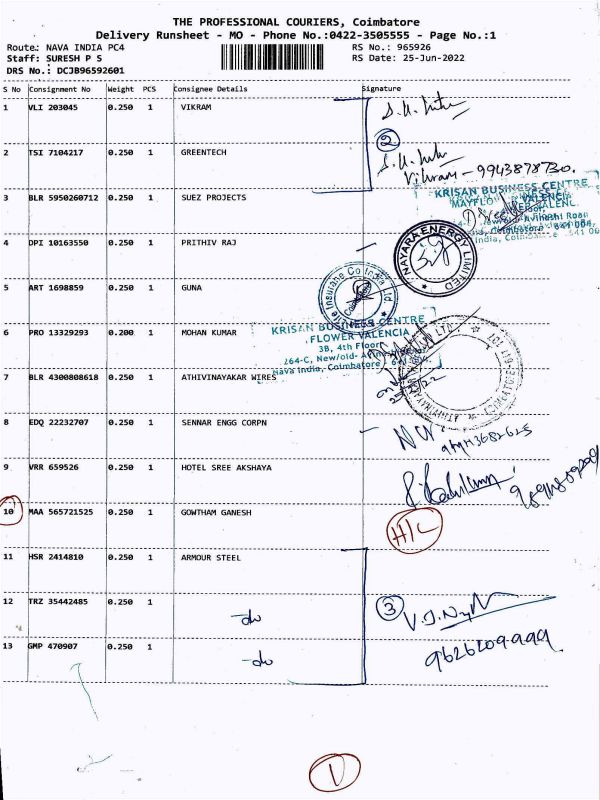 THE PROFESSIONAL COURIERS, Coimbatore
Delivery Runsheet - MO - Phone No.:0422-3505555 - Page No.:1
Route: NAVA INDIA PC4 RS No.: 965926
Staff: SURESH P S RS Date: 25-Jun-2022
DRS No.: DCJB96592601
S No Consignment No Weight PCS Consignee Details Signature
1 VLI 203045 0.250 1 VIKRAM
2
2 TSI 7104217 0.250 1 GREENTECH
Vikram - 9943878730.
3 BLR 5950260712 0.250 1 SUEZ PROJECTS
KRISAN BUSINESS CENTRE
MAYFLOWER VALENCIA
4 DPI 10163550 0.250 1 PRITHIV RAJ
NAYARA ENERGY LIMITED
5 ART 1698859 0.250 1 GUNA
6 PRO 13329293 0.200 1 MOHAN KUMAR
KRISAN BUSINESS CENTRE
FLOWER VALENCIA
3B, 4th Floor
264-C, New/old-
Nava India, Coimbatore
7 BLR 4300808618 0.250 1 ATHIVINAYAKAR WIRES
8 EDQ 22232707 0.250 1 SENNAR ENGG CORPN
9 VRR 659526 0.250 1 HOTEL SREE AKSHAYA
10 MAA 565721525 0.250 1 GOWTHAM GANESH
H/C
11 HSR 2414810 0.250 1 ARMOUR STEEL
12 TRZ 35442485 0.250 1 -do
3
13 GMP 470907 0.250 1 -do
9626209999
1